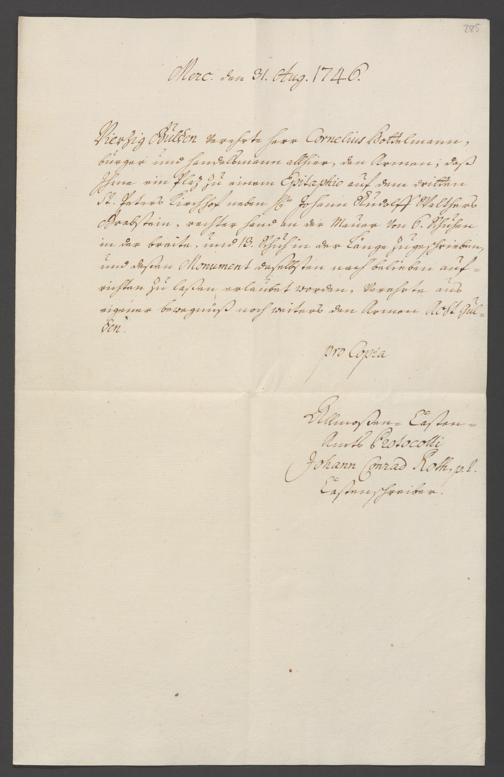 285
Merc. den 31. Aug. 1746.
Vierzig Gulden verehrte Herr Cornelius Bottelmann,
burger und handelsmann allhier, den Armen; daß
Ihme ein Plaz zu einem Epitaphio auf dem dritten
St. Peters Kirchhof neben Johann Rudolff Walthers
Grabstein, rechter hand an der Mauer von 6. Schuhen
in der breite, und 13. Schuh in der Länge zugeschrieben,
und deßen Monument daselbsten nach belieben auf-
richten zu laßen erlaubet worden. Verehrte aus
eigener bewegnuß noch weiters den Armen Acht Gul-
den.
pro Copia
Allmoßen- Casten-
Amts Protocolli
Johann Conrad Roth,
Castenschreiber.